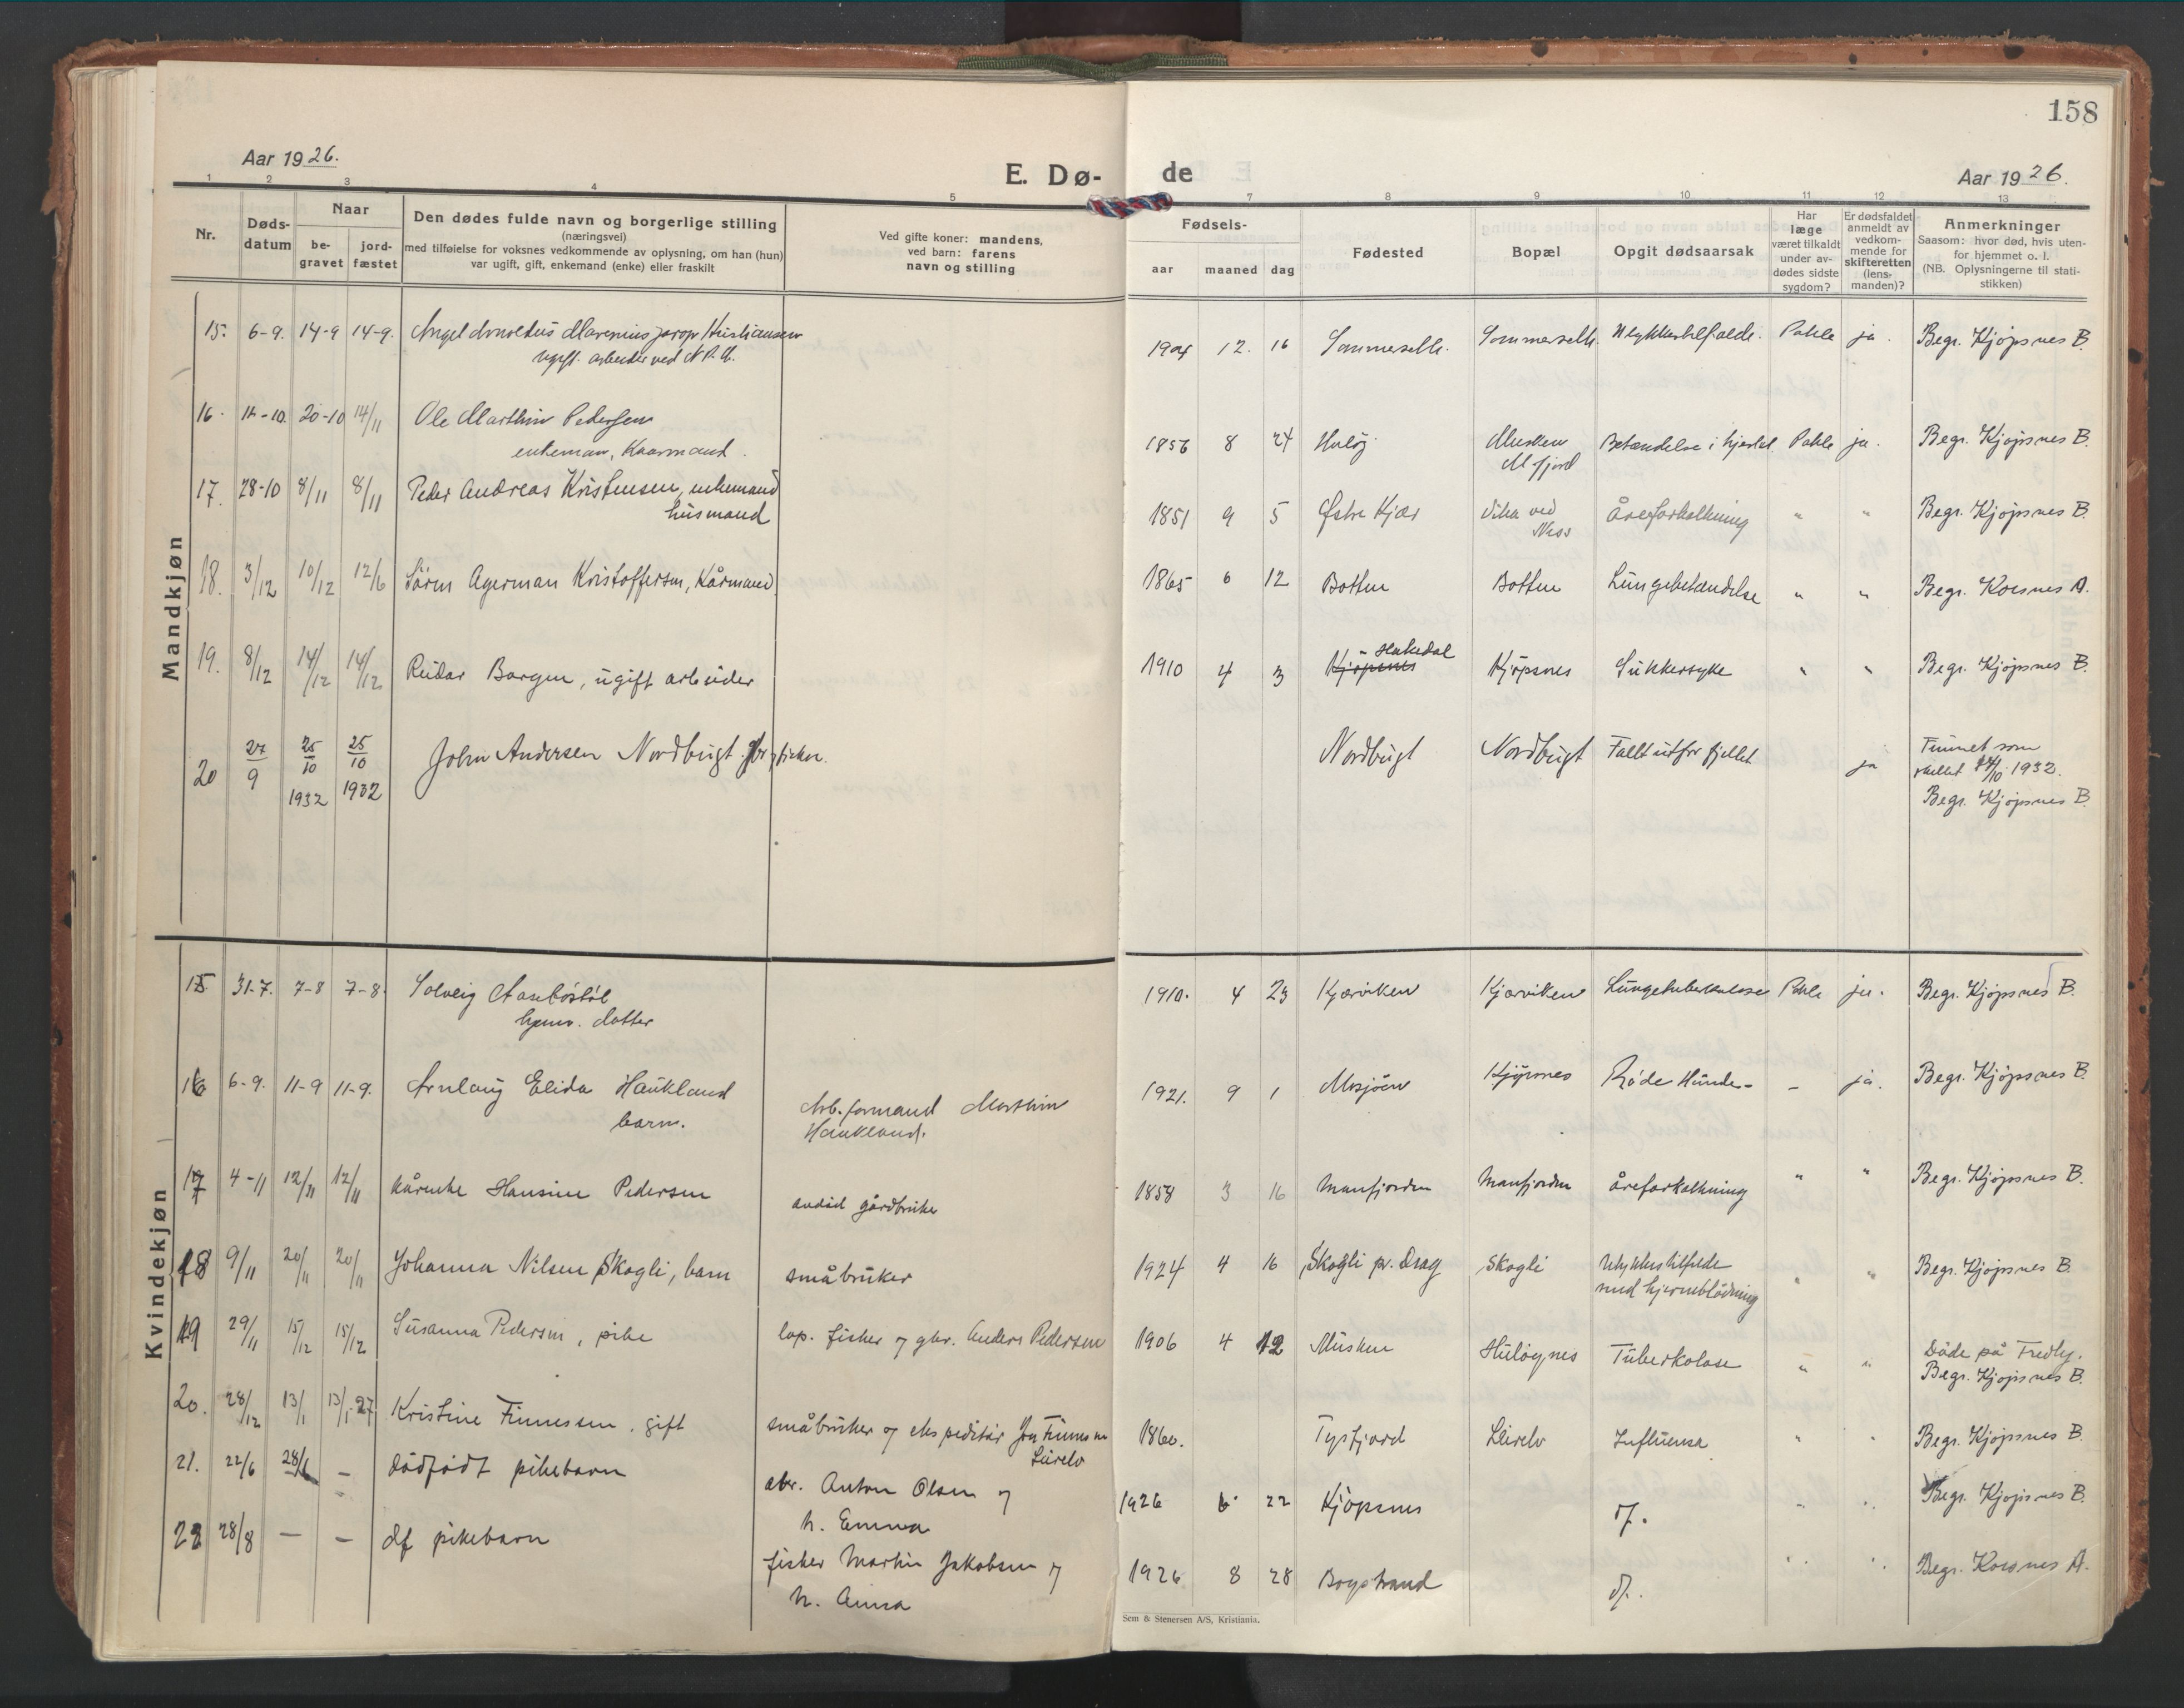 158
Aar 1926.
E. Dø-
de
Aar 1926.
1 2 3 4 5 7 8 9 10 11 12 13
Nr.
Døds-
datum
Naar
be-
gravet
jord-
fæstet
Den dødes fulde navn og borgerlige stilling
(næringsvei)
med tilføielse for voksnes vedkommende av oplysning, om han (hun)
var ugift, gift, enkemand (enke) eller fraskilt
Ved gifte koner: mandens,
ved barn: farens
navn og stilling
Fødsels-
aar maaned dag
Fødested
Bopæl
Opgit dødsaarsak
Har
læge
været tilkaldt
under av-
dødes sidste
sygdom?
Er dødsfaldet
anmeldt av
vedkom-
mende for
skifteretten
(lens-
manden)?
Anmerkninger
Saasom: hvor død, hvis uten-
for hjemmet o. l.
(NB. Oplysningerne til stati-
stikken)
Mandkjøn
15. 6-9. 14-9 14-9. Kristiansen 1904 12. 16 ja. Begr. Kjøpsnes B.
ugift. arbeider ved
16. 20-10 14/11 Ole Marthin Pedersen 1856 8 24 Huløj Musken Betændelse i hjertet Pahle ja. Begr. Kjøpsnes B.
enkeman, Kaarmand. M fjord
17. 28-10 8/11 8/11 Peder Andreas Kristensen, enkemand 1851 9 5 Østre Kjær Vika ved Åreforkalkning " " Begr. Kjøpsnes B.
husmand Ness
18. 3/12 10/12 12/6 Sørm Agerman Kristoffersen, Kårmand 1865 6 12 Botten Botten Lungebetændelse " " Begr. Korsnes A.
19. 8/12 14/12 14/12 Reidar Borgen, ugift arbeider 1910 4 3 Kjøpsnes Hakedal Kjøpsnes Sukkersyke " " Begr. Kjøpsnes B.
20 27/9 25/10 1932 25/10 1932 John Andersen Nordbugt. fisker. Nordbugt Nordbugt Fallt utfor fjellet ja Funnet som
skellet 24/10 1932.
Begr. Kjøpsnes B.
Kvindekjøn
15 31-7. 7-8 7-8. Solveig 1910. 4 23 Kjærviken Kjærviken Lungetuberkulose Pahle ja. Begr. Kjøpsnes B.
hjemv. datter
16 6-9. 11-9 11-9. Arnlaug Elida Haukland Arb.formand Marthin 1921. 9 1 Mosjøen Kjøpsnes Røde Hunde - – ja. Begr. Kjøpsnes B.
barn. Haukland.
17 4-11 12/11 12/11 kårenke Hansine Pedersen avdød gårdbruker 1858 3 16 Manfjorden Manfjorden åreforkalkning " " Begr. Kjøpsnes B.
18 9/11 20/11 20/11 Johanna Nilsen Skogli, barn småbruker 1924 4 16 Skogli pr. Drag Skogli Ulykkestilfelde " " Begr. Kjøpsnes B.
med hjerneblødning
19 29/11 15/12 15/12 Susanna Pedersen, pike lap. fisker og gbr. Anders Pedersen 1906 4 12 Musken Huløynes Tuberkolose " " Døde på Fredly.
Begr. Kjøpsnes B.
20. 28/12 13/1 13/1 27 Kristine Finnessen, gift småbruker og ekspeditør Finnesen 1860. Tysfjord Leirelv Influensa " " Begr. Kjøpsnes B.
Leirelv
21. 22/6 28/6 – dødfødt pikebarn Anton Olsen og 1926 6 22 Kjøpsnes df. " " Begr. Kjøpsnes B.
h. Emma
22 28/8 – – df pikebarn fisker Martin Jakobsen og 1926 8 28 Bogstrand df. " " Begr. Korsnes A.
h. Anna
Sem & Stenersen A/S, Kristiania.